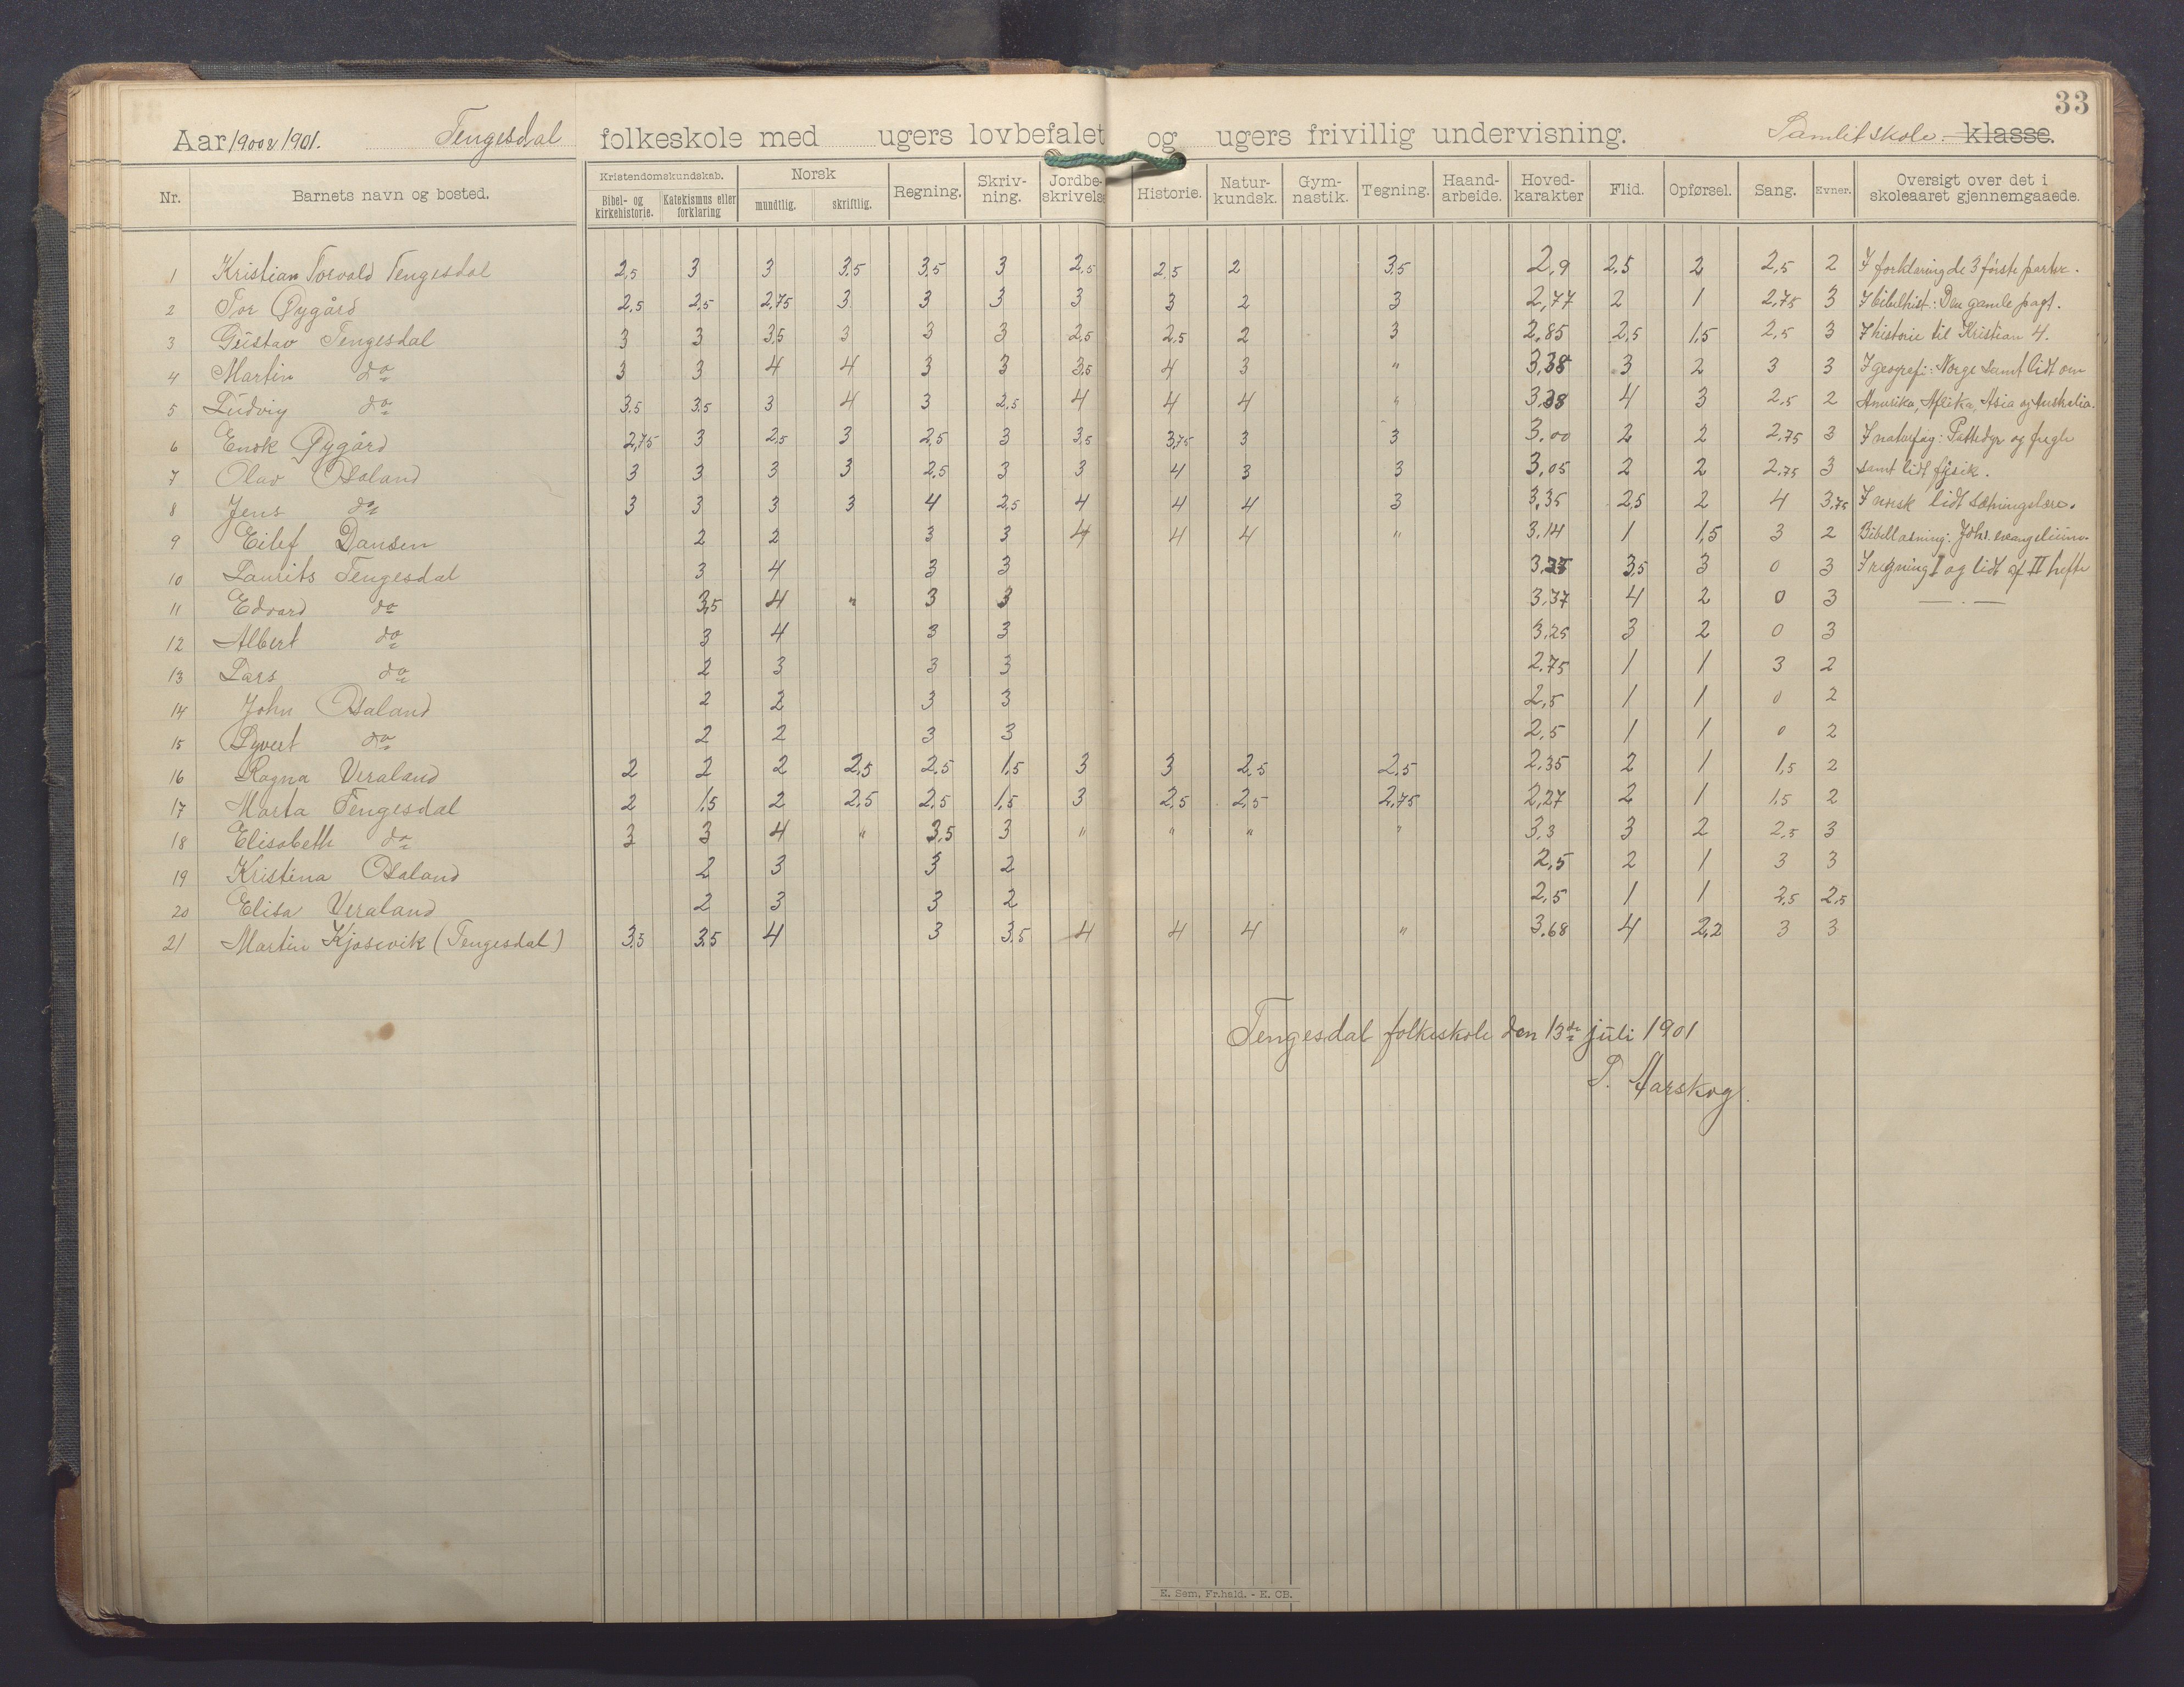 33
Aar 1900 & 1901. Tengesdal folkeskole med ugers lovbefalet og ugers frivillig undervisning. Samlet skole. klasse.
Nr. Barnets navn og bosted. Kristendomskundskab. Bibel- og kirkehistorie. Katekismus eller forklaring Norsk mundtlig. skriftlig. Regning. Skriv-ning. Jordbe-skrivelse Historie. Natur-kundsk. Gym-nastik. Tegning. Haand-arbeide. Hoved-karakter Flid. Opførsel. Sang. Evner. Oversigt over det i skoleaaret gjennemgaaede.
1 Kristian Torvald Tengesdal 2,5 3 3 3,5 3,5 3 2,5 2,5 2 3,5 2,9 2,5 2 2,5 2 I forklaring de 3 første parter.
2 Tor Øygård 2,5 2,5 2,75 3 3 3 3 3 2 3 2,77 2 1 2,75 3 I bibelhist: Den gamle pagt.
3 Gustav Tengesdal 3 3 3,5 3 3 3 2,5 2,5 2 3 2,85 2,5 1,5 2,5 3 I historie til Kristian 4.
4 Martin do 3 3 4 4 3 3 3,5 4 3 " 3,38 3 2 3 3 I geografi: Norge samt lidt om
5 Ludvig do 3,5 3,5 3 4 3 2,5 4 4 4 " 3,38 4 3 2,5 2 Amerika, Afrika, Asia og Australia.
6 Enok Øygård 2,75 3 2,5 3 2,5 3 3,5 3,75 3 3 3.00 2 2 2,75 3 I naturfag: Pattedyr og fugle
7 Olav Osaland 3 3 3 3 2,5 3 3 4 3 3 3.05 2 2 2,75 3 samt lidt fysik.
8 Jens do 3 3 3 3 4 2,5 4 4 4 3 3,35 2,5 2 4 3,75 I norsk lidt sætningslære.
9 Eilef Dansen 2 2 3 3 4 4 4 " 3.14 1 1,5 3 2 Bibellæsning: Johs. evangelium.
10 Laurits Tengesdal 3 4 3 3 3,25 3,5 3 0 3 I regning I og lidt af II hefte
11 Edvard do 3,5 4 " 3 3 3,37 4 2 0 3 — . —
12 Albert do 3 4 3 3 3,25 3 2 0 3
13 Lars do 2 3 3 3 2.75 1 1 3 2
14 John Osaland 2 2 3 3 2,5 1 1 0 2
15 Syvert do 2 2 3 3 2,5 1 1 0 2
16 Ragna Veraland 2 2 2 2,5 2,5 1,5 3 3 2,5 2,5 2.35 2 1 1,5 2
17 Marta Tengesdal 2 1,5 2 2,5 2,5 1,5 3 2,5 2,5 2,75 2,27 2 1 1,5 2
18 Elisabeth do 3 3 4 " 3,5 3 " " " " 3,3 3 2 2,5 3
19 Kristina Osaland 2 3 3 2 2,5 2 1 3 3
20 Elisa Veraland 2 3 3 2 2,5 1 1 2,5 2,5
21 Martin Kjosevik (Tengesdal) 3,5 3,5 4 3 3,5 4 4 4 " 3.68 4 2,2 3 3
Tengesdal folkeskole den 13de juli 1901
P. Aarskog.
E. Sem, Fr.hald. - E. CB.